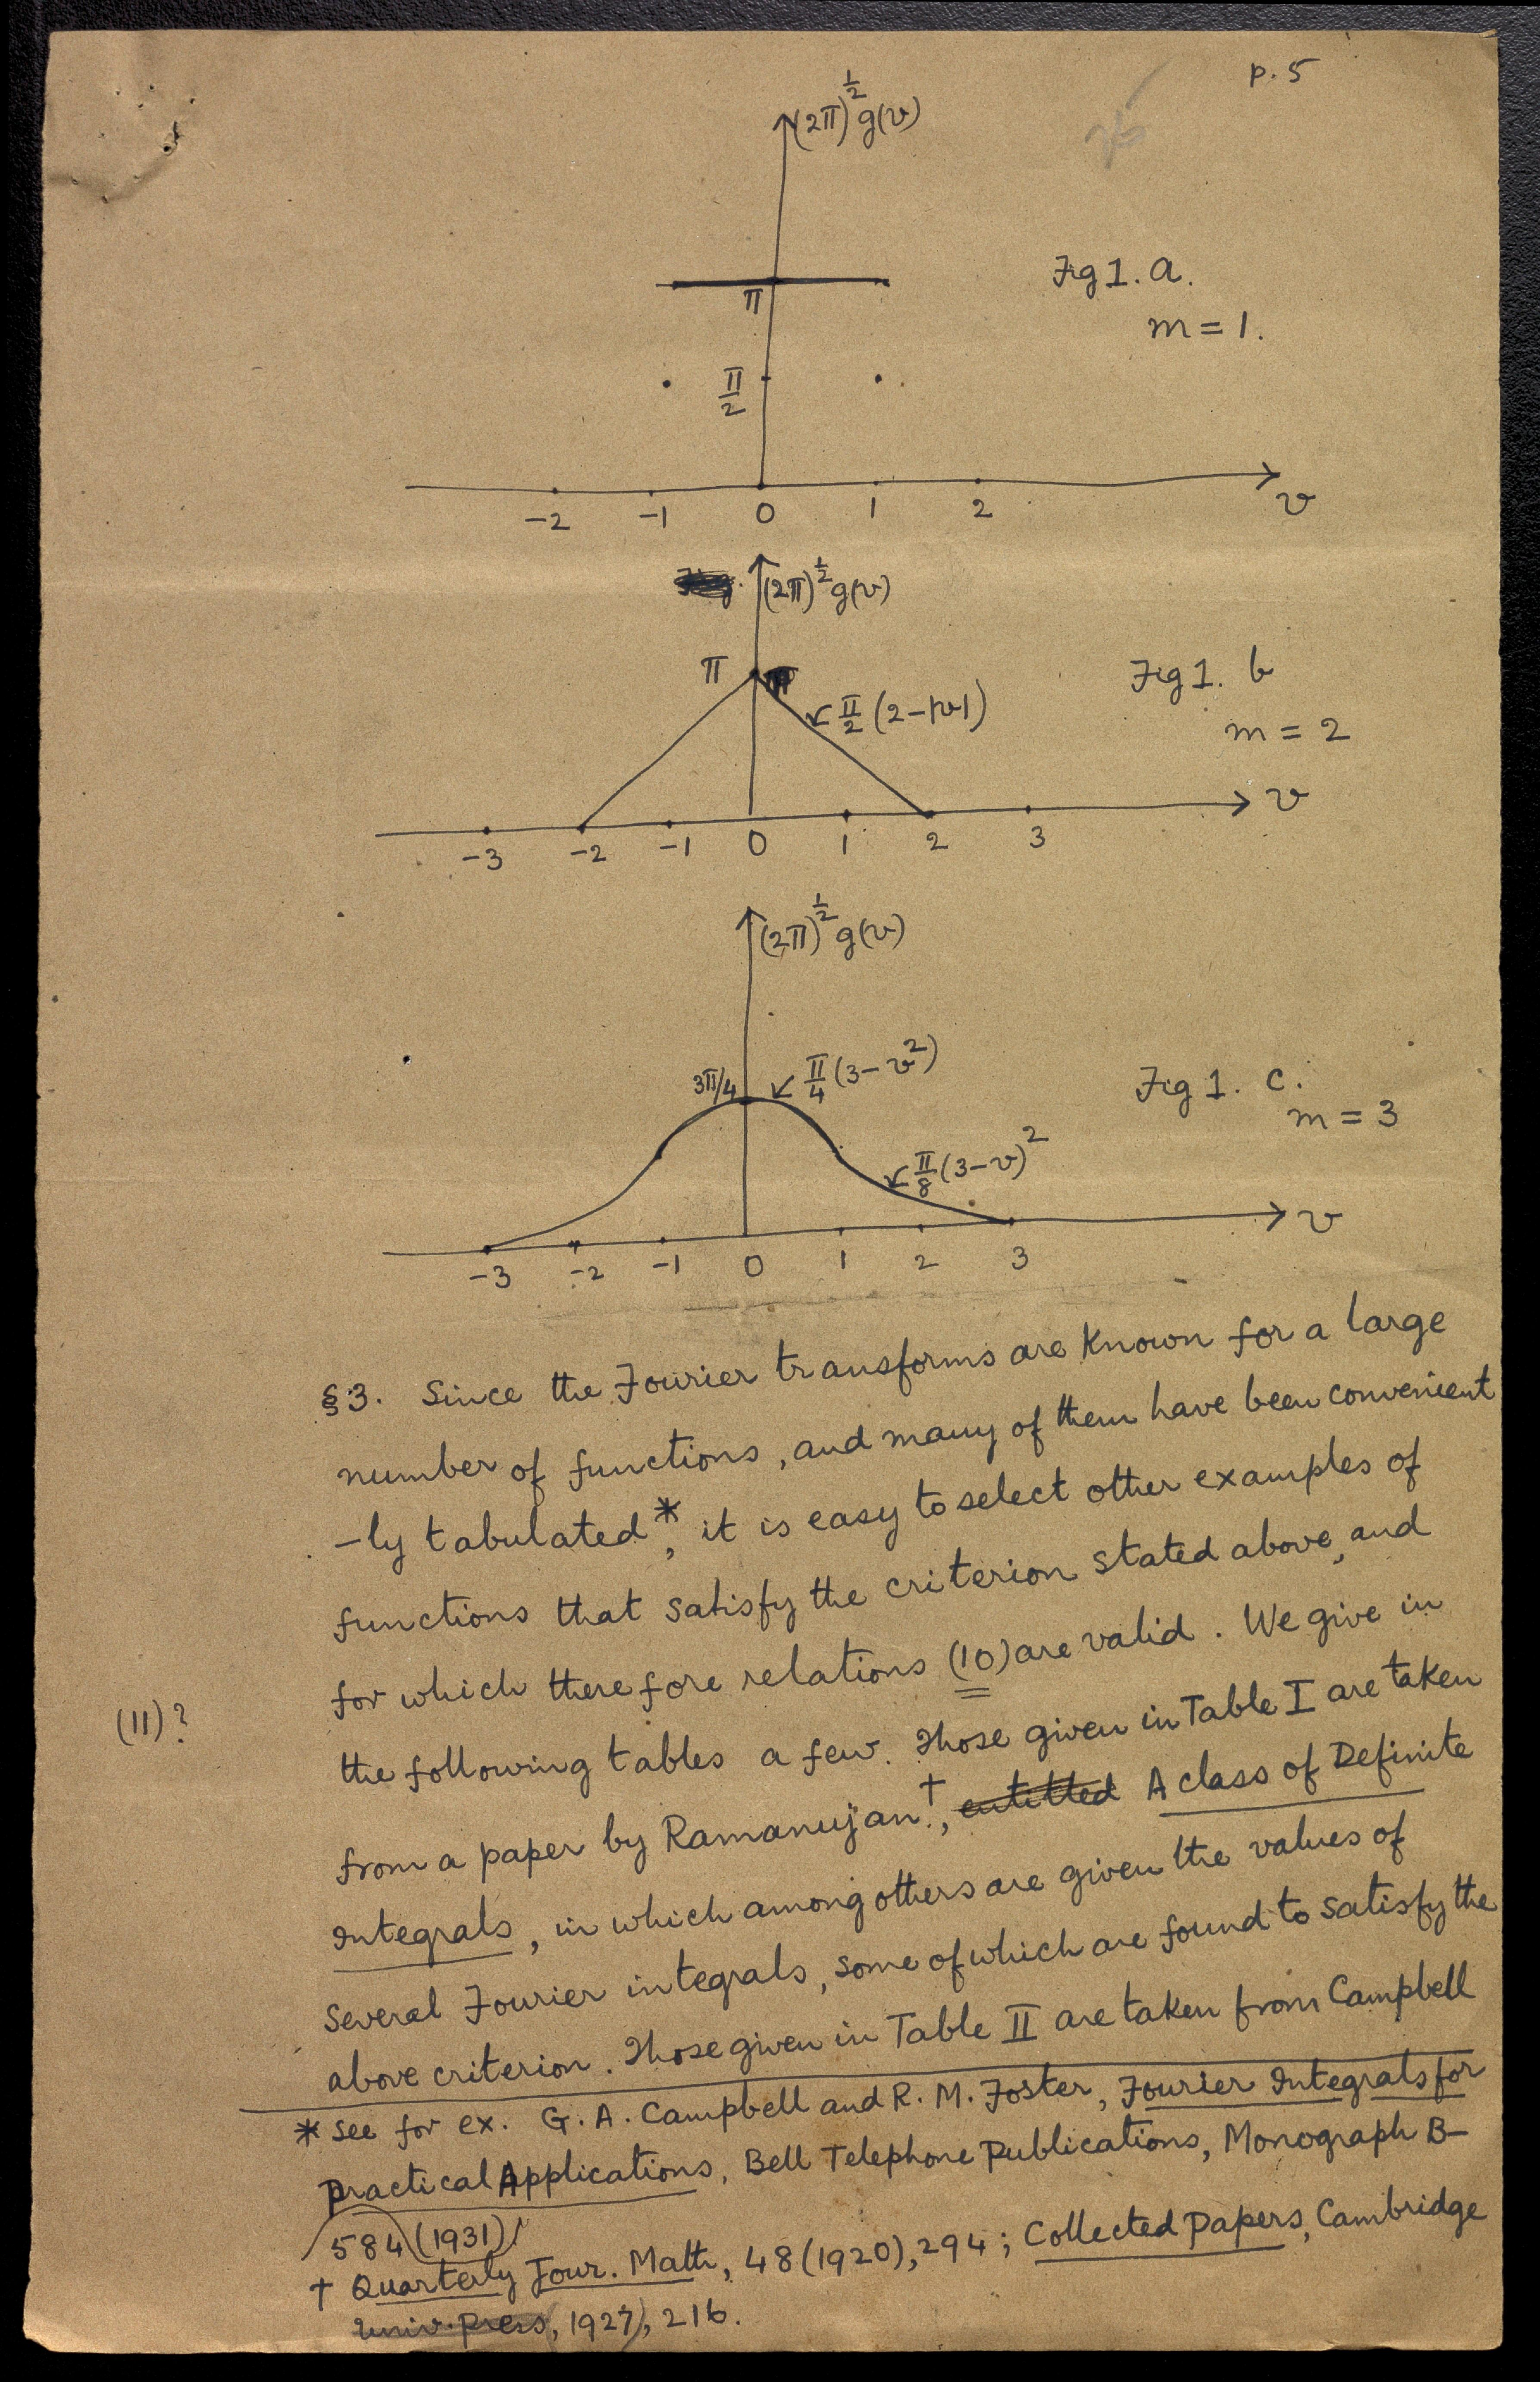 p. 5
(2π)^½ g(v)
Fig 1. a.
π
m = 1.
π/2
-2 -1 0 1 2 v
(2π)^½ g(v)
π
Fig 1. b
π/2 (2-|v|)
m = 2
v
-3 -2 -1 0 1 2 3
(2π)^½ g(v)
3π/4 π/4 (3-v²)
Fig 1. c.
m = 3
π/8 (3-v)²
v
-3 -2 -1 0 1 2 3
§3. Since the Fourier transforms are known for a large
number of functions, and many of them have been convenient
-ly tabulated*, it is easy to select other examples of
functions that satisfy the criterion stated above, and
for which therefore relations (10) are valid. We give in
(11)?
the following tables a few. Those given in Table I are taken
from a paper by Ramanujan†, entitled A class of Definite
Integrals, in which among others are given the values of
several Fourier integrals, some of which are found to satisfy the
above criterion. Those given in Table II are taken from Campbell
* See for ex. G. A. Campbell and R. M. Foster, Fourier Integrals for
Practical Applications, Bell Telephone Publications, Monograph B-
584 (1931)
† Quarterly Jour. Math, 48 (1920), 294; Collected Papers, Cambridge
Univ. Press, 1927), 216.